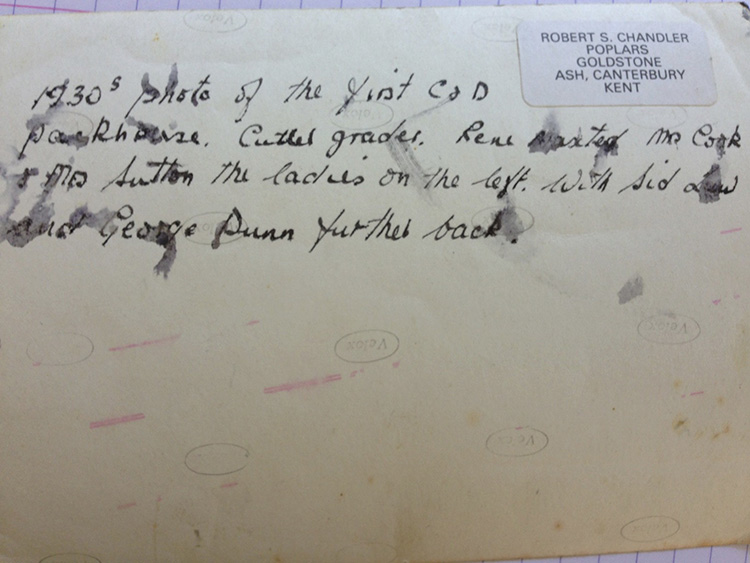 ROBERT S. CHANDLER
POPLARS
GOLDSTONE
ASH, CANTERBURY
KENT
1930s photo of the first C&D
packhouse. Cutler grader. Rene Mr Cook
& Mrs Sutton the ladies on the left. With Sid
and George Dunn further back.
Velox
Velox
Velox